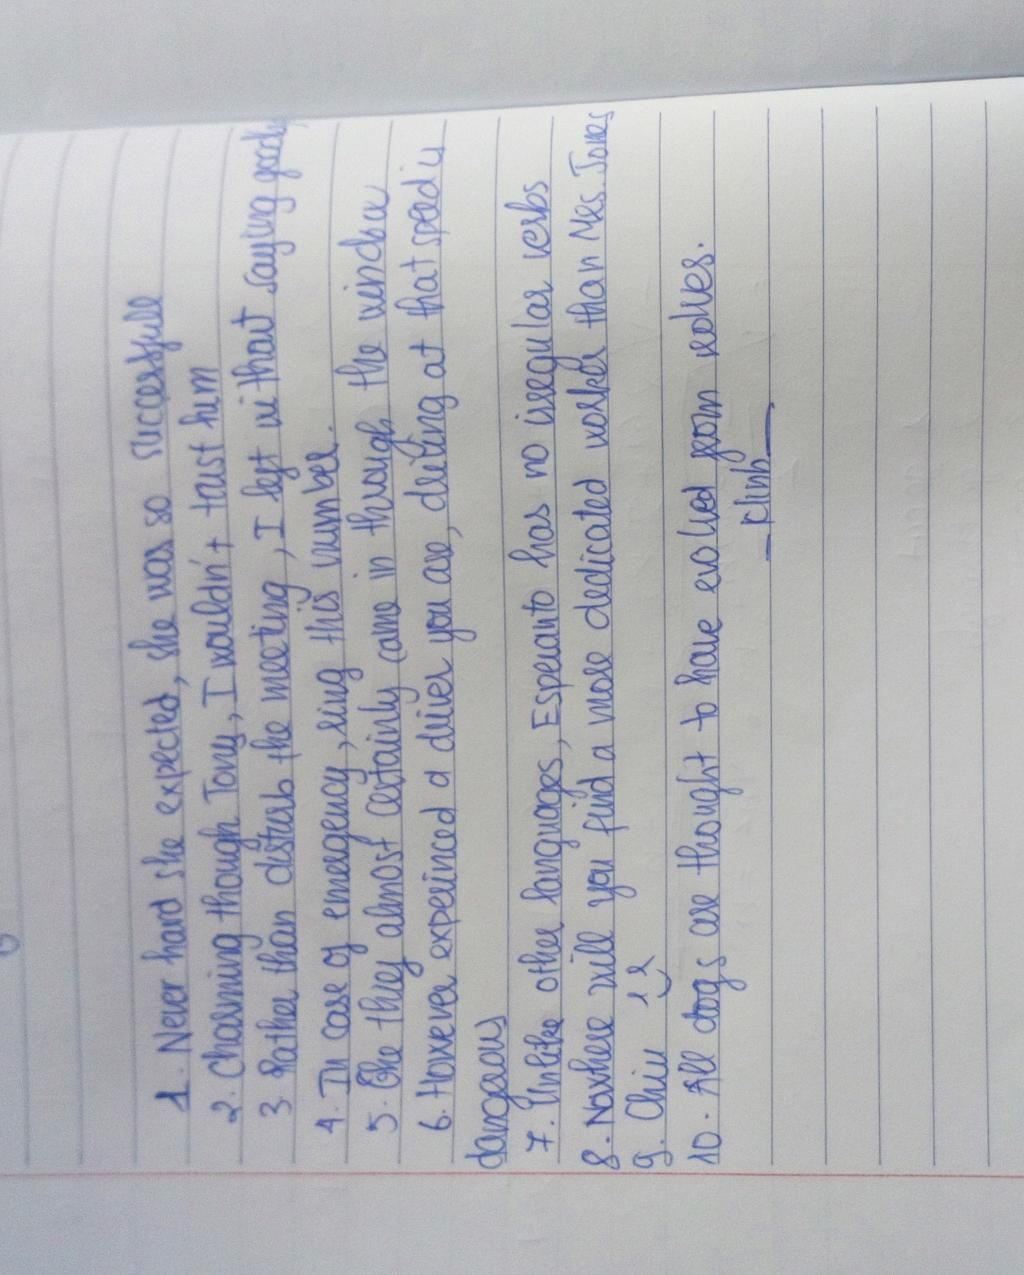 1. Never hard she expected, she was so successfull
2. Charming though Tony, I wouldn't trust him
3. Rather than disturb the meeting, I left without saying goodb
4. In case of emergency, ring this number.
5. The thief almost certainly came in through the window
6. However experinced a driver you are, driving at that speed is
dangerous
7. Unlike other languages, Esperanto has no irregular verbs
8. Nowhere will you find a more dedicated worker than Mrs. Jones
9. Chiu
10. All dogs are thought to have evolved from wolves.